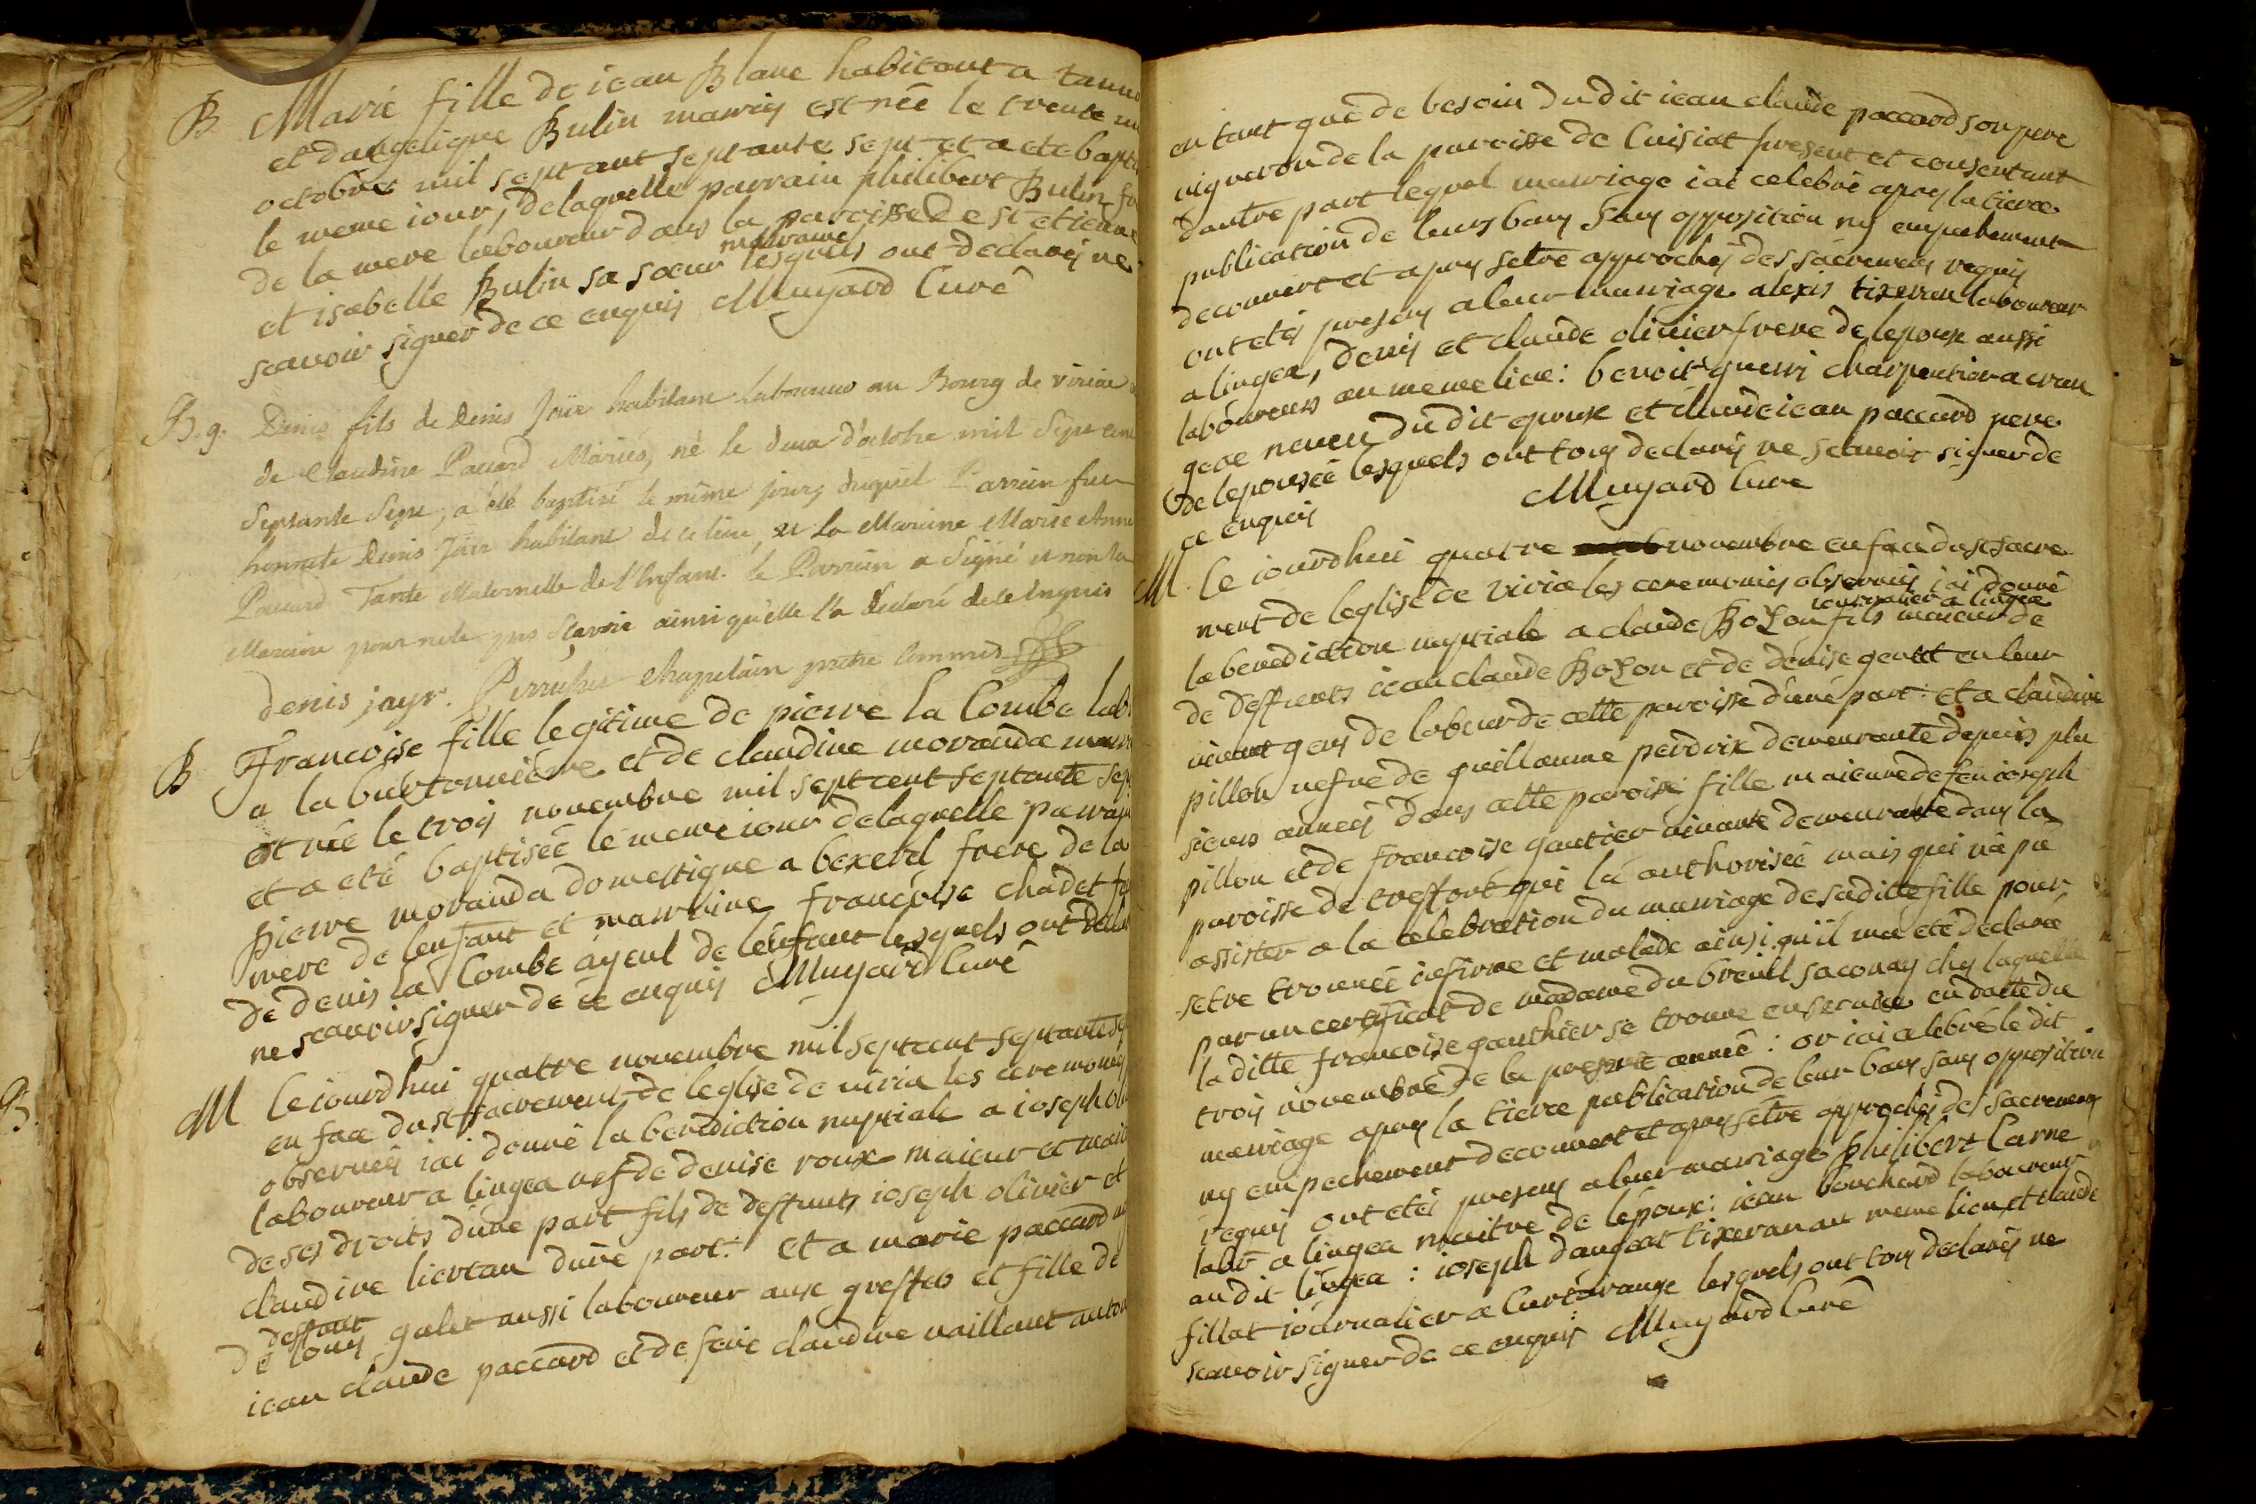 B Marie fille de iean Blanc habitant a
et dangelique Bulin mariés est née le trente
octobre mil sept cent septante sept et a ete bapti
le meme iour, delaquelle parrain philibert Bulin
de la mere laboureur dans la paroisse de st etienne
et isabelle Bulin sa soeur marraine lesquels ont declarés ne
scavoir signer de ce enquis Mugard Curé
B.g. Denis fils de Denis Jaÿr habitant Laboureur au Bourg de viriat
de Claudine Paccard Mariés, né le deux d'octobre mil Sept cent
Septante Sept, a été baptisé le même jour, duquel Parrain fut
honnete Denis Jaÿr habitant de ce lieu, et la Maraine Marie Anne
Paccard Tante Maternelle de l'Enfant. le Parrain a Signé et non la
Maraine pour ne le pas Sçavoir ainsi qu'elle l'a déclaré de ce Enquis
denis jayr. chapelain prêtre commis
B Francoise fille legitime de pierre la Combe lab
a la et de claudine moranda mari
est née le trois novembre mil sept cent septante sep
et a eté baptisée le meme iour delaquelle parrain
pierre moranda domestique a bexerel frere de la
mere de lenfant et marraine francoise chadet
de denis la Combe ayeul de lenfant lesquels ont
ne scavoir signer de ce enquis Mugard Curé
M Ce iourdhui quatre novembre mil sept cent septante
en face du st sacrement de leglise de viria les ceremonies
observées iai donné la benediction nuptiale a ioseph oli
laboureur a lingea vef de denise roux maieur et mait
de ses droits dune part fils de deffunts ioseph olivier et
claudine liertan dune part: et a marie paccard
deffunt
de louis galet aussi laboureur aux greffets et fille de
iean claude paccard et de feue claudine vaillant
en tant que de besoin du dit iean claude paccard son pere
vigneron de la paroisse de Cuisiat present et consentant
dautre part lequel mariage iai celebré apres la tierce
publication de leurs bans sans opposition ny empechement
decouvert et apres setre approchés des sacremens requis
ont etés presens a leur mariage alexis tixeran laboureur
a lingea, denis et claude olivier frere de lepoux aussi
laboureurs au meme lieu: benoit charpentier a cran
neveu du dit epoux et claude iean paccard pere
de lepousée lesquels ont tous declarés ne scavoir signer de
ce enquis Mugard Curé
M. Ce iourdhui quatre novembre en face du st sacre
ment de leglise de viria les ceremonies observées iai donné
la benediction nuptiale a claude Bozon iournalier a lingea fils maieur de
de deffunts iean claude Bozon et de denise en leur
vivant gens de labeur de cette paroisse dune part: et a claudine
pillon vefve de guillaume perdrix demeurante depuis plu
sieurs années dans cette paroisse fille maieure de feu ioseph
pillon et de francoise gautier vivante demeurante dans la
paroisse de treffort qui la authorisée mais qui na pu
assister a la celebration du mariage de sa dite fille pour
setre trouvée infirme et malade ainsi qu'il ma été declaré
par un certificat de madame du breuil saconay chez laquelle
la ditte francoise gauthier se trouve en service en datte du
trois novembre de la presente année: or iai celebré le dit
mariage apres la tierce publication de leur bans sans opposition
ny empechement decouvert et apres setre approchés des sacremens
requis ont etés presens a leur mariage philibert Carne
labr a lingea maitre de lepoux: iean bouchard laboureur
au dit lingea: ioseph dangeat tixeran au meme lieu, et claude
fillat iournalier a Curtarange lesquels ont tous declarés ne
scavoir signer de ce enquis Mugard Curé